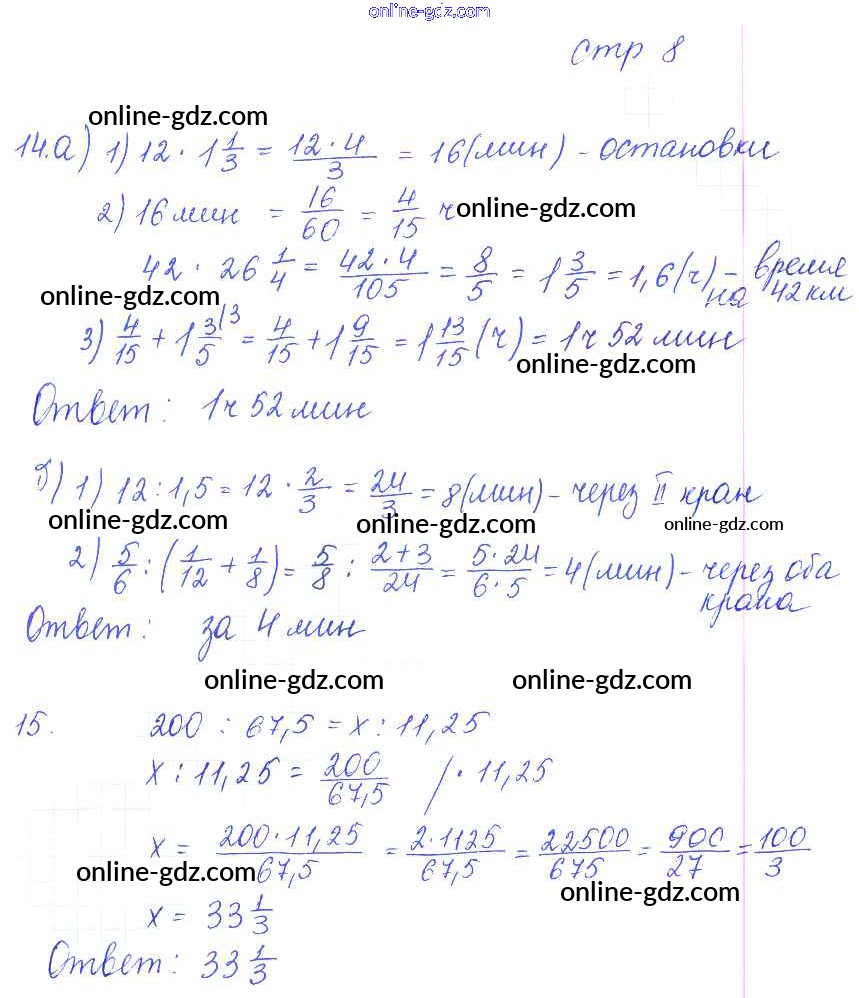 online-gdz.com
стр 8
online-gdz.com
14.а) 1) 12 · 1 1/3 = 12·4/3 = 16(мин) - остановки
2) 16 мин = 16/60 = 4/15 ч online-gdz.com
42 · 26 1/4 = 42·4/105 = 8/5 = 1 3/5 = 1,6(ч) - время на 42 км
online-gdz.com
3) 4/15 + 1 3/5 |3 = 4/15 + 1 9/15 = 1 13/15 (ч) = 1ч 52 мин
online-gdz.com
Ответ: 1ч 52 мин
б) 1) 12 : 1,5 = 12 · 2/3 = 24/3 = 8(мин) - через II кран
online-gdz.com online-gdz.com online-gdz.com
2) 5/6 : (1/12 + 1/8) = 5/8 : 2+3/24 = 5·24/6·5 = 4(мин) - через оба крана
Ответ: за 4 мин
online-gdz.com online-gdz.com
15. 200 : 67,5 = x : 11,25
x : 11,25 = 200/67,5 / · 11,25
x = 200·11,25/67,5 = 2·1125/67,5 = 22500/675 = 900/27 = 100/3
online-gdz.com online-gdz.com
x = 33 1/3
Ответ: 33 1/3